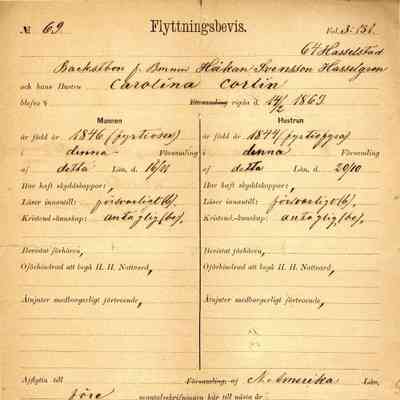 № 69. Flyttningsbevis. Fol.
64 Hasselstad
Backstbon f. Håkan Svensson Hasselgren
och hans Hustru Carolina Corlin
blefvo i Församling vigda d. 1863
Mannen Hustrun
är född år 1846 är född år 1844
i denna i denna Församling
af detta Län, d. 16/11 af detta Län, d. 20/10
Har haft skyddskoppor: , Har haft skyddskoppor: ,
Läser innantill: försvarligt(b). Läser innantill: försvarligt(b).
Kristend.-kunskap: antaglig(be). Kristend.-kunskap: antaglig(be).
Bevistat förhören, Bevistat förhören,
Oförhindrad att begå H. H. Nattvard, Oförhindrad att begå H. H. Nattvard,
Åtnjuter medborgerligt förtroende, Åtnjuter medborgerligt förtroende,
Afflytta till Församling, af N. Amerika Län
före mantalsskrifningen här till nästa år.